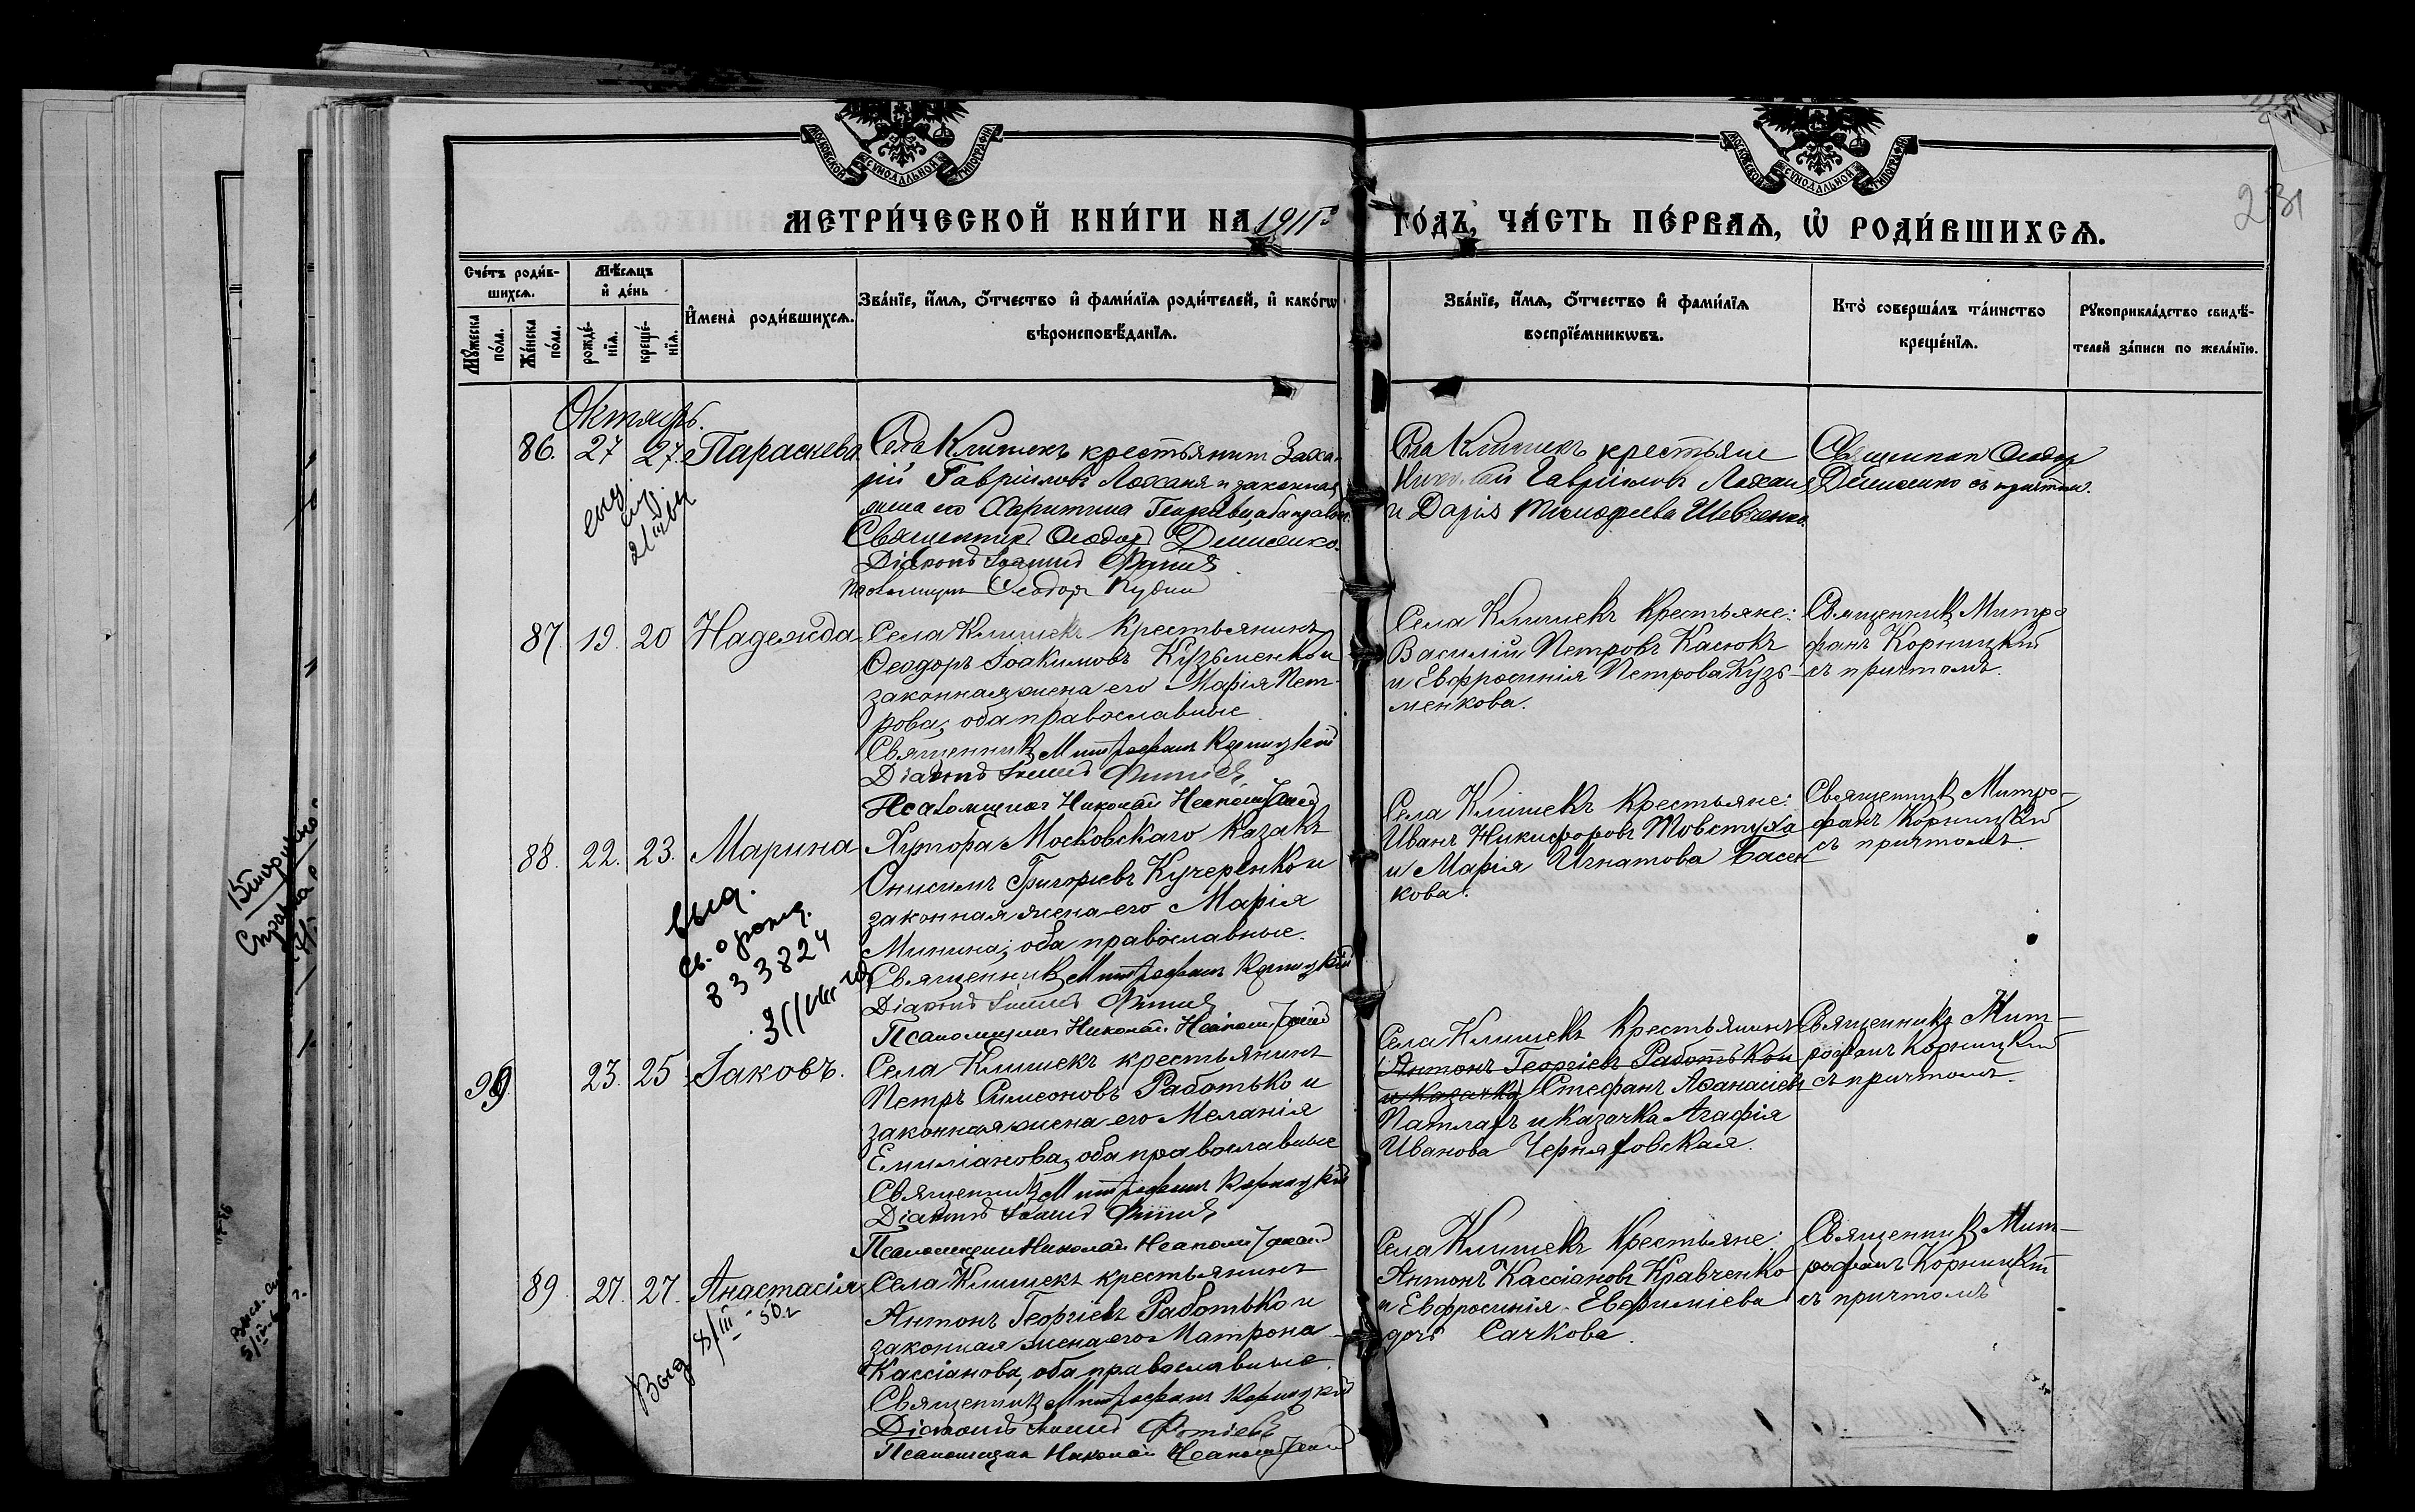 МОСКОВСКОЙ СѴНОДАЛЬНОЙ ТИПОГРАФІИ
МОСКОВСКОЙ СѴНОДАЛЬНОЙ ТИПОГРАФІИ
231
МЕТРИ́ЧЕСКОЙ КНИ́ГИ НА 1911 ГО́ДЪ, ЧА́СТЬ ПЕ́РВАѦ, Ѡ҆ РОДИ́ВШИХСѦ.
Сче́тъ роди́в-
шихсѧ.
Мꙋ́жеска по́ла.
Же́нска по́ла.
Мѣ́сѧцъ
и҆ де́нь
рожде́-
нїѧ.
креще́-
нїѧ.
И҆мена̀ роди́вшихсѧ.
Зва́нїе, и҆́мѧ, ѻ҆́тчество и҆ фами́лїѧ роди́телей, и҆ како́гѡ
вѣроисповѣ́данїѧ.
Зва́нїе, и҆́мѧ, ѻ҆́тчество и҆ фами́лїѧ
воспрїе́мникѡвъ.
Кто̀ соверша́лъ та́инство
креще́нїѧ.
Рꙋкоприкла́дство свидѣ́-
телей за́писи по жела́нїю.
Октябрь.
86. 27 27. Параскева.
Села Клишекъ крестьянинъ Заха-
рій Гавріиловъ Лоханя и законная
жена его Харитина
Священникъ Ѳеодоръ Демиденко.
Діаконъ Іоаннъ
Псаломщикъ Ѳеодоръ
Села Клишекъ крестьяне
Николай Гавріиловъ Лоханя
и Дарія Тимоѳеева Шевченко.
Священникъ Ѳеодоръ
Демиденко съ причтомъ.
87. 19. 20 Надежда
Села Клишекъ крестьянинъ
Ѳеодоръ Іоакимовъ Кузьменко и
законная жена его Марія Пет-
рова, оба православные
Священникъ Митрофанъ Корницкій
Діаконъ Іоаннъ
Псаломщикъ Николай
Села Клишекъ крестьяне:
Василій Петровъ Касюкъ
и Евфросинія Петрова Кузь-
менкова.
Священникъ Митро
фанъ Корницкій
съ причтомъ.
88. 22. 23. Марина
Хутора Московскаго казакъ
Онисимъ Григорьевъ Кучеренко и
законная жена его Марія
Минина; оба православные.
Священникъ Митрофанъ Корницкій
Діаконъ Іоаннъ
Псаломщикъ Николай
Села Клишекъ крестьяне:
Иванъ Никифоровъ Товстуха
и Марія Игнатова Васен
кова.
Священникъ Митро-
фанъ Корницкій
съ причтомъ.
выд.
св. о рожд.
833824
23. 25 Іаковъ.
Села Клишекъ крестьянинъ
Петръ Симеоновъ Работько и
законная жена его Меланія
Емиліанова, оба православные
Священникъ Митрофанъ Корницкій
Діаконъ Іоаннъ
Псаломщикъ Николай
Села Клишекъ крестьянинъ
Антонъ Георгіевъ Работько и
и казачка Стефанъ Аѳанасіевъ
Патлахъ и казачка Агафія
Иванова Черняховская.
Священникъ Мит-
рофанъ Корницкій
съ причтомъ.
89. 27. 27. Анастасія
Села Клишекъ крестьянинъ
Антонъ Георгіевъ Работько и
законная жена его Матрона
Кассіанова, оба православные.
Священникъ Митрофанъ Корницкій
Діаконъ Іоаннъ
Псаломщикъ Николай
Села Клишекъ крестьяне:
Антонъ Кассіановъ Кравченко
и Евфросинія Евфиміева
дочь Сачкова.
Священникъ Мит-
рофанъ Корницкій
съ причтомъ
Выд 8/III 50г